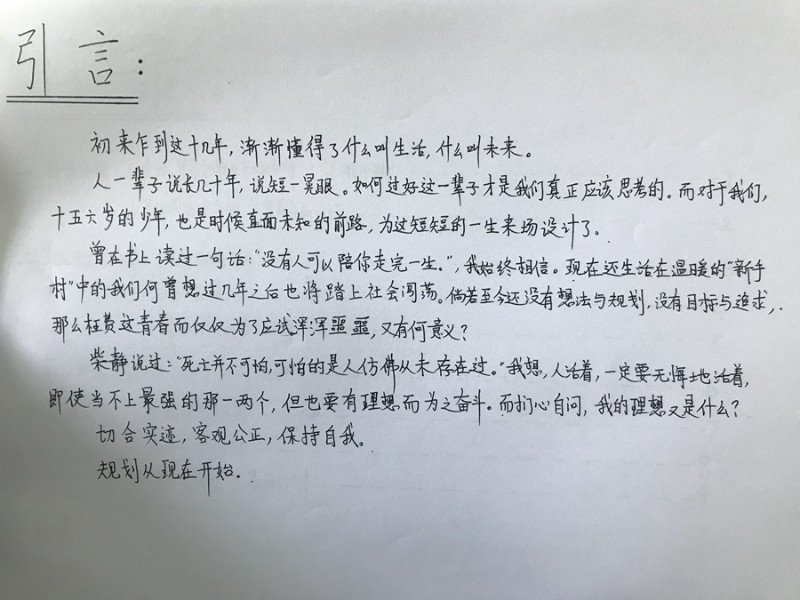 引言：
初来乍到这十几年，渐渐懂得了什么叫生活，什么叫未来。
人一辈子说长几十年，说短一晃眼。如何过好这一辈子才是我们真正应该思考的。而对于我们，
十五六岁的少年，也是时候直面未知的前路，为这短短的一生来场设计了。
曾在书上读过一句话：“没有人可以陪你走完一生。”，我始终相信。现在还生活在温暖的“新手
村”中的我们何曾想过几年之后也将踏上社会闯荡。倘若至今还没有想法与规划，没有目标与追求，.
那么枉费这青春而仅仅为了应试浑浑噩噩，又有何意义？
柴静说过：“死亡并不可怕，可怕的是人仿佛从未存在过。”我想，人活着，一定要无悔地活着，
即使当不上最强的那一两个，但也要有理想而为之奋斗。而扪心自问，我的理想又是什么？
切合实迹，客观公正，保持自我。
规划从现在开始.